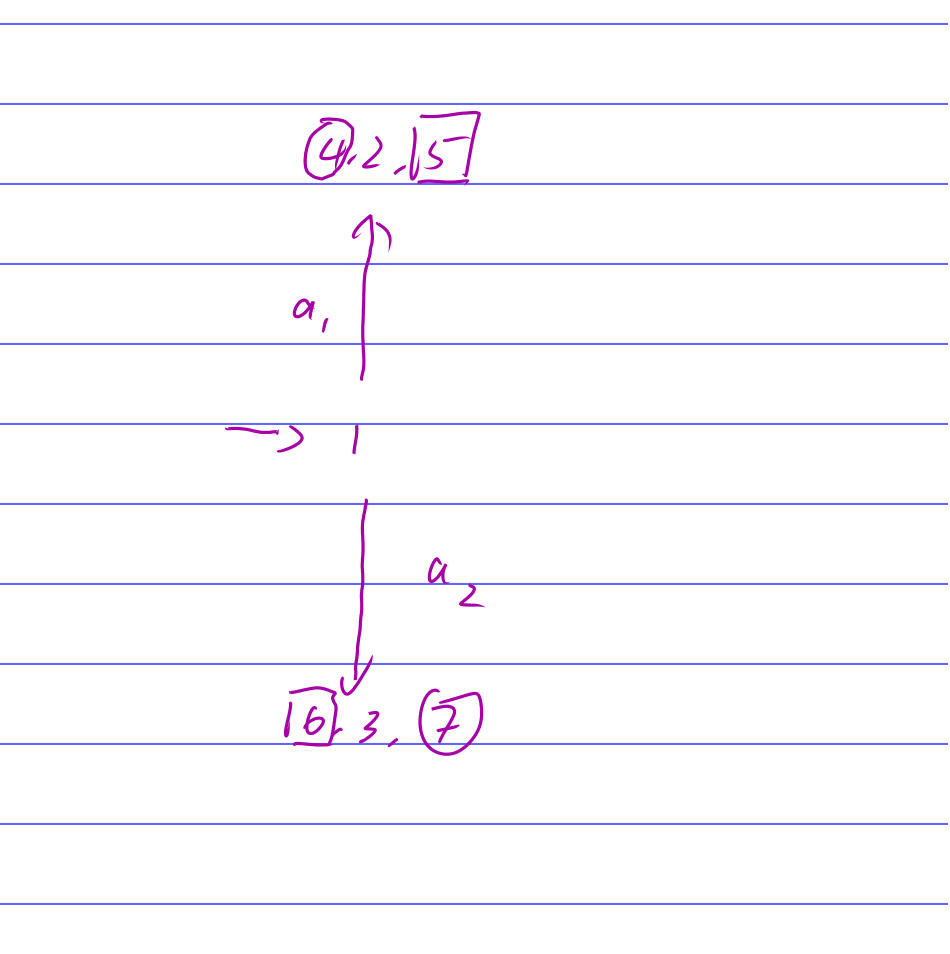 4, 2, 5
a₁
→ 1
a₂
6, 3, 7